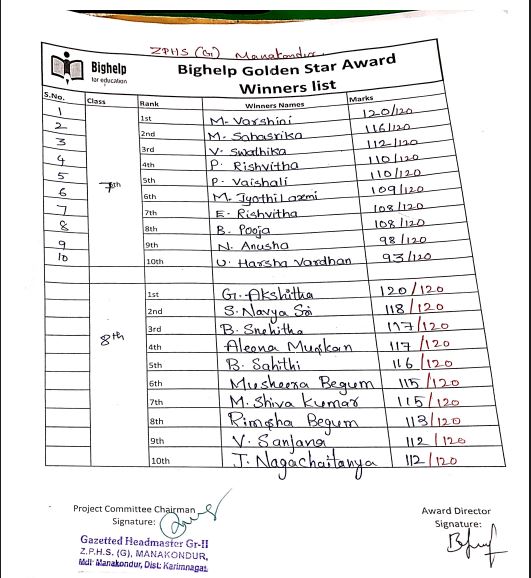 ZPHS (G) Manakondur
Bighelp
for education
Bighelp Golden Star Award
Winners list
S.No. Class Rank Winners Names Marks
1 7th 1st M. Varshini 120/120
2 2nd M. Sahasrika 116/120
3 3rd V. Swathika 112/120
4 4th P. Rishvitha 110/120
5 5th P. Vaishali 110/120
6 6th M. Jyothi Laxmi 109/120
7 7th E. Rishvitha 108/120
8 8th B. Pooja 108/120
9 9th N. Anusha 98/120
10 10th U. Harsha Vardhan 93/120
8th 1st G. Akshitha 120/120
2nd S. Navya Sri 118/120
3rd B. Snehitha 117/120
4th Aleena Muskan 117/120
5th B. Sahithi 116/120
6th Musheera Begum 115/120
7th M. Shiva Kumar 115/120
8th Rimsha Begum 113/120
9th V. Sanjana 112/120
10th J. Nagachaitanya 112/120
Project Committee Chairman
Signature:
Award Director
Signature:
Gazetted Headmaster Gr-II
Z.P.H.S. (G), MANAKONDUR,
Mdl: Manakondur, Dist: Karimnagar.